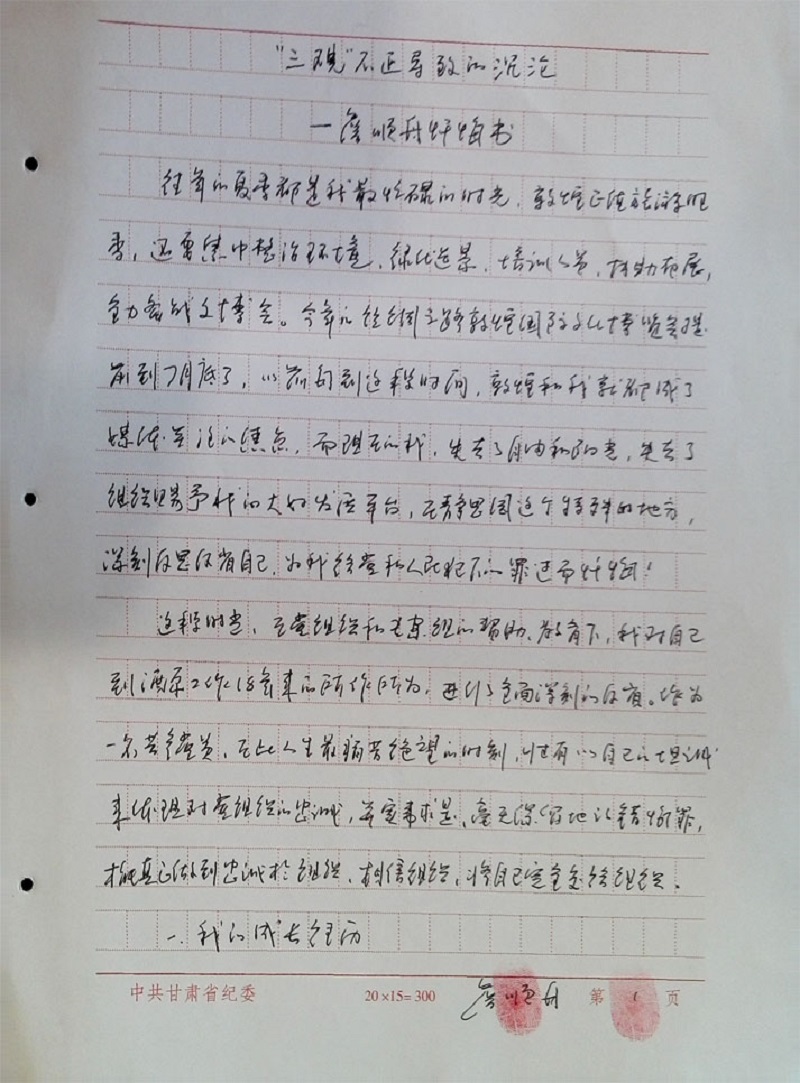 “三观”不正导致的沉沦
—詹顺舟忏悔书
往年的夏季都是我最忙碌的时光，敦煌正值旅游旺
季，还要集中整治环境，绿化造景，培训人员，招助布展，
全力备战文博会。今年的丝绸之路敦煌国际文化博览会提
前到7月底了，以前每到这段时间，敦煌和我就都成了
媒体关注的焦点，而现在的我，失去了自由和阳光，失去了
组织赐予我的大好发活平台，在静思园这个特殊的地方，
深刻反思反省自己，为我给党和人民犯下的罪过而忏悔！
这段时光，在党组织和专案组的帮助、教育下，我对自己
到酒泉工作18年来的所作所为，进行了全面深刻的反省。作为
一名共产党员，在此人生最痛苦绝望的时刻，只有以自己的坦诚
来体现对党组织的忠诚，并实事求是、毫无保留地认错悔罪，
才能真正做到忠诚于组织、相信组织，将自己完全交给组织。
一、我的成长经历
中共甘肃省纪委 20×15=300 詹顺舟 第1页